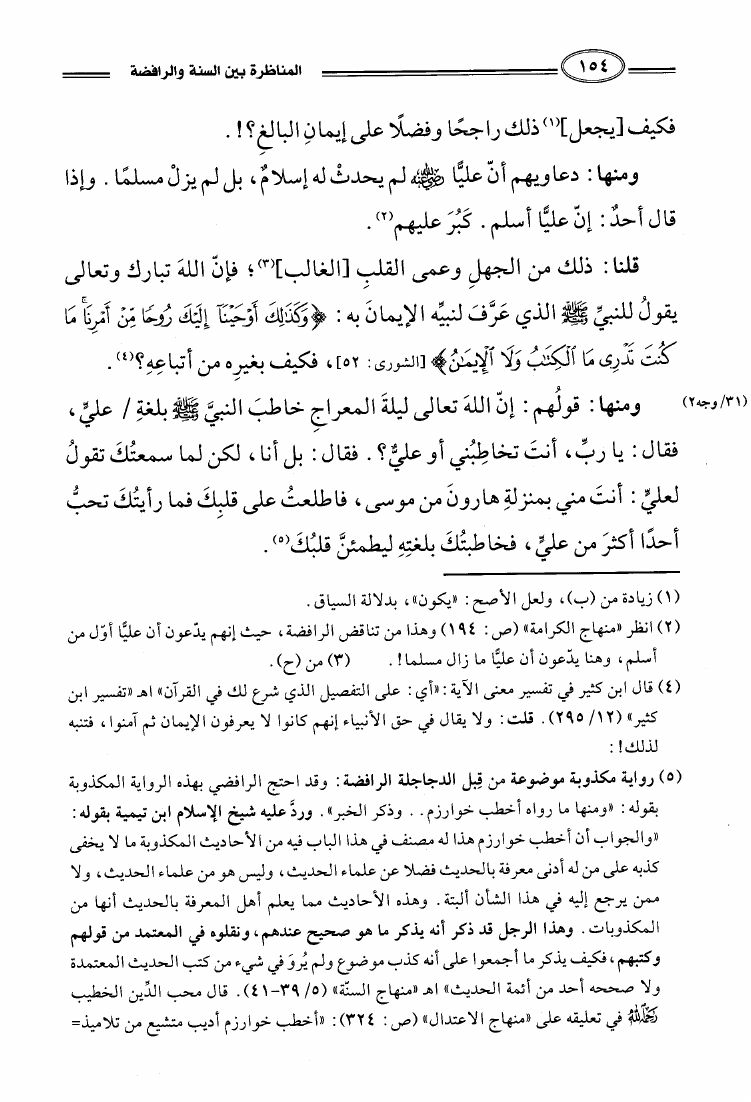 ١٥٤ المناظرة بين السنة والرافضة
فكيف [يجعل]⁽¹⁾ ذلك راجحًا وفضلًا على إيمانِ البالغِ؟!.
ومنها: دعاويهم أنّ عليًّا ﵁ لم يحدثْ له إسلامٌ، بل لم يزلْ مسلمًا. وإذا
قال أحدٌ: إنّ عليًّا أسلم. كَبُرَ عليهم⁽٢⁾.
قلنا: ذلك من الجهلِ وعمى القلبِ [الغالب]⁽٣⁾؛ فإنّ اللهَ تبارك وتعالى
يقولُ للنبيِّ ﷺ الذي عَرَّفَ لنبيِّه الإيمانَ به: ﴿وَكَذَٰلِكَ أَوْحَيْنَآ إِلَيْكَ رُوحًا مِّنْ أَمْرِنَا ۚ مَا
كُنتَ تَدْرِى مَا ٱلْكِتَٰبُ وَلَا ٱلْإِيمَٰنُ﴾ [الشورى: ٥٢]، فكيف بغيرِه من أتباعِهِ؟⁽٤⁾.
ومنها: قولُهم: إنّ اللهَ تعالى ليلةَ المعراجِ خاطبَ النبيَّ ﷺ بلغةِ / عليٍّ، (٣١/وجه٢)
فقال: يا ربِّ، أنتَ تخاطِبُني أو عليٌّ؟. فقال: بل أنا، لكن لما سمعتُكَ تقولُ
لعليٍّ: أنتَ مني بمنزلةِ هارونَ من موسى، فاطلعتُ على قلبِكَ فما رأيتُكَ تحبُّ
أحدًا أكثرَ من عليٍّ، فخاطبتُكَ بلغتِهِ ليطمئنَّ قلبُكَ⁽٥⁾.
(١) زيادة من (ب)، ولعل الأصح: «يكون»، بدلالة السياق.
(٢) انظر «منهاج الكرامة» (ص: ١٩٤) وهذا من تناقض الرافضة، حيث إنهم يدّعون أن عليًّا أوّل من
أسلم، وهنا يدّعون أن عليًّا ما زال مسلما!. (٣) من (ح).
(٤) قال ابن كثير في تفسير معنى الآية: «أي: على التفصيل الذي شرع لك في القرآن» اهـ «تفسير ابن
كثير» (١٢/ ٢٩٥). قلت: ولا يقال في حق الأنبياء إنهم كانوا لا يعرفون الإيمان ثم آمنوا، فتنبه
لذلك!:
(٥) رواية مكذوبة موضوعة من قِبل الدجاجلة الرافضة: وقد احتج الرافضي بهذه الرواية المكذوبة
بقوله: «ومنها ما رواه أخطب خوارزم.. وذكر الخبر». وردَّ عليه شيخ الإسلام ابن تيمية بقوله:
«والجواب أن أخطب خوارزم هذا له مصنف في هذا الباب فيه من الأحاديث المكذوبة ما لا يخفى
كذبه على من له أدنى معرفة بالحديث فضلا عن علماء الحديث، وليس هو من علماء الحديث، ولا
ممن يرجع إليه في هذا الشأن ألبتة. وهذه الأحاديث مما يعلم أهل المعرفة بالحديث أنها من
المكذوبات. وهذا الرجل قد ذكر أنه يذكر ما هو صحيح عندهم، ونقلوه في المعتمد من قولهم
وكتبهم، فكيف يذكر ما أجمعوا على أنه كذب موضوع ولم يُروَ في شيء من كتب الحديث المعتمدة
ولا صححه أحد من أئمة الحديث» اهـ «منهاج السنّة» (٥/ ٣٩-٤١). قال محب الدِّين الخطيب
رَحِمَهُ اللهُ في تعليقه على «منهاج الاعتدال» (ص: ٣٢٤): «أخطب خوارزم أديب متشيع من تلاميذ=